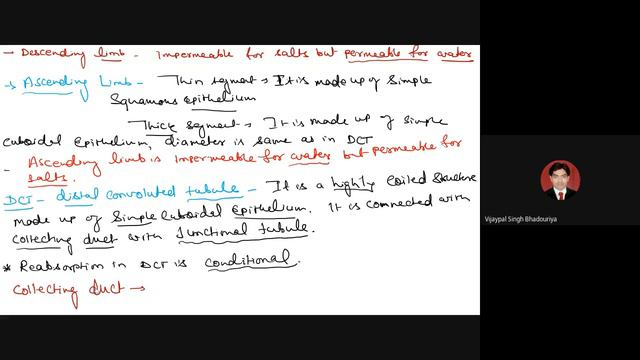 → Descending limb - Impermeable for salts but permeable for water
→ Ascending Limb - Thin segment → It is made up of Simple
Squamous epithelium
Thick segment → It is made up of simple
cuboidal epithelium, diameter is same as in DCT
- Ascending limb is impermeable for water but permeable for
salts.
DCT - distal convoluted tubule - It is a highly coiled structure
made up of Simple cuboidal epithelium. It is connected with
collecting duct with Junctional tubule.
* Reabsorption in DCT is conditional.
Collecting duct →
Vijaypal Singh Bhadouriya